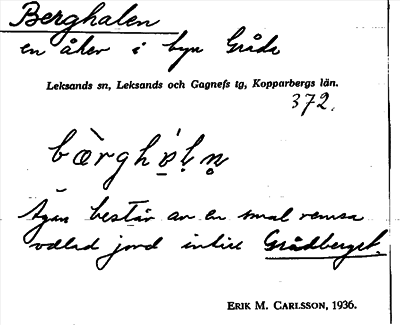 Berghalen
en åker i byn Gråda
Leksands sn, Leksands och Gagnefs tg, Kopparbergs län.
372.
bæ̀rghɒ́l̥n̥
Ägan består av en smal remsa
odlad jord intill Grådberget.
ERIK M. CARLSSON, 1936.